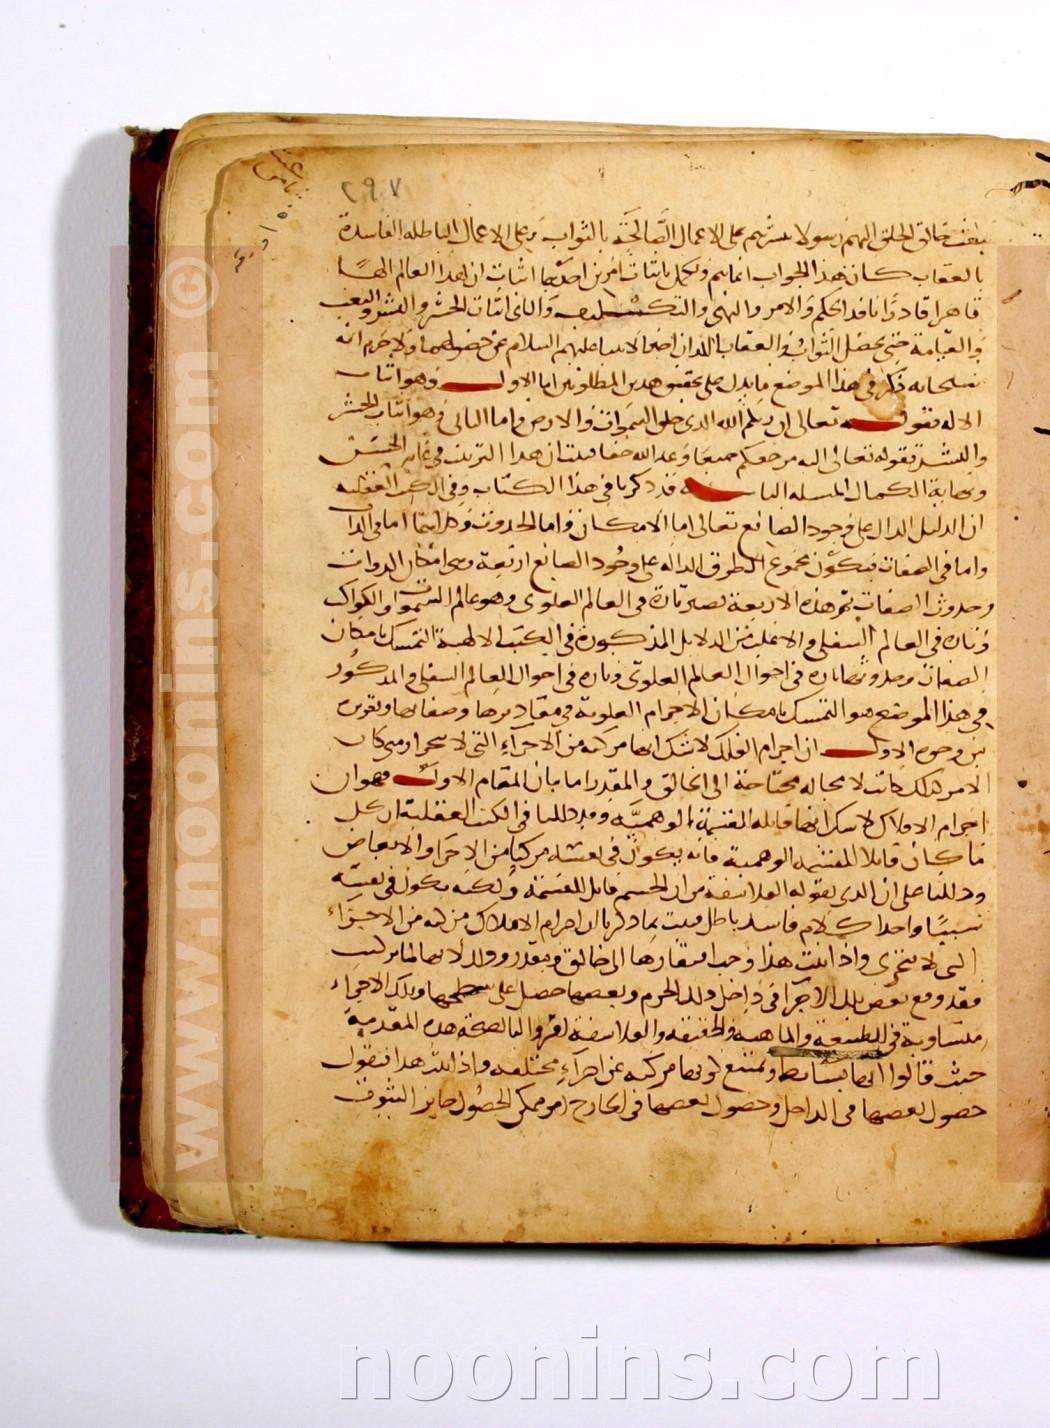 ٢٩٧
يبعث خالق الخلق اليهم رسولا يبشرهم على الاعمال الصالحة بالثواب وعلى الاعمال الباطلة الفاسدة
بالعقاب كان هذا الجواب انما يتم ويكمل باثبات امرين احدهما اثبات ان لهذا العالم الها
قاهرا قادرا نافذ الحكم والامر والنهى والتكليف والثانى اثبات الحشر والنشر والبعث
والقيامة حتى يحصل الثواب والعقاب اللذان اخبر الانبياء عليهم السلام عن حصولهما ولا جرم انه
سبحانه ذكر فى هذا الموضع ما يدل على تحقيق هذين المطلوبين اما الاول وهو اثبات
الاله فقوله تعالى ان ربكم الله الذى خلق السموات والارض واما الثانى وهو اثبات الحشر
والنشر فقوله تعالى اليه مرجعكم جميعا وعد الله حقا فثبت ان هذا الترتيب فى غاية الحسن
ونهاية الكمال المسله الثانيه قد ذكرنا فى هذا الكتاب وفى الكتب العقلية
ان الدليل الدال على وجود الصانع تعالى اما الامكان واما الحدوث وكلاهما اما فى الذات
واما فى الصفات فيكون مجموع الطرق الدالة على وجود الصانع اربعة وهى امكان الذوات
وحدوث الصفات ثم هذه الاربعة تعتبر تارة فى العالم العلوى وهو عالم السموات والكواكب
وتارة فى العالم السفلى والاغلب من الدلايل المذكورة فى الكتب الالهية التمسك بامكان
الصفات وحدوثها تارة فى احوال العالم العلوى وتارة فى احوال العالم السفلى والمذكور
فى هذا الموضع هو التمسك بامكان الاجرام العلوية فى مقاديرها وصفاتها وتقريره
من وجوه الاول ان اجرام الفلك لا شك انها مركبة من الاجزاء التى لا تتجزا ومتى كان
الامر كذلك كانت لا محالة محتاجة الى الخالق والمقدر اما بان المقام الاول فهو ان
اجرام الافلاك لا شك انها قابلة للقسمة الوهمية وقد دللنا فى الكتب العقلية ان كل
ما كان قابلا للقسمة الوهمية فانه يكون فى نفسه مركبا من الاجزاء والابعاض
ودللنا على ان الذى يقوله الفلاسفة من ان الجسم قابل للقسمة ولكنه يكون فى نفسه
شييا واحدا كلام فاسد باطل فثبت بما ذكرنا ان اجرام الافلاك مركبة من الاجزاء
التى لا تتجزى واذا ثبت هذا وجب افتقارها الى خالق ومقدر وذلك لانها لما تركبت
فقد وقع بعض تلك الاجزا فى داخل ذلك الجرم وبعضها حصل على سطحها وتلك الاجزاء
متساوية فى الطبيعة والماهية والحقيقة والفلاسفة اقروا لنا بصحة هذه المقدمة
حيث قالوا انها بسائط ويمتنع كونها مركبة عن اجزاء مختلفة واذا ثبت هذا فنقول
حصول بعضها فى الداخل وحصول بعضها فى الخارج امر ممكن الحصول جايز الثبوت